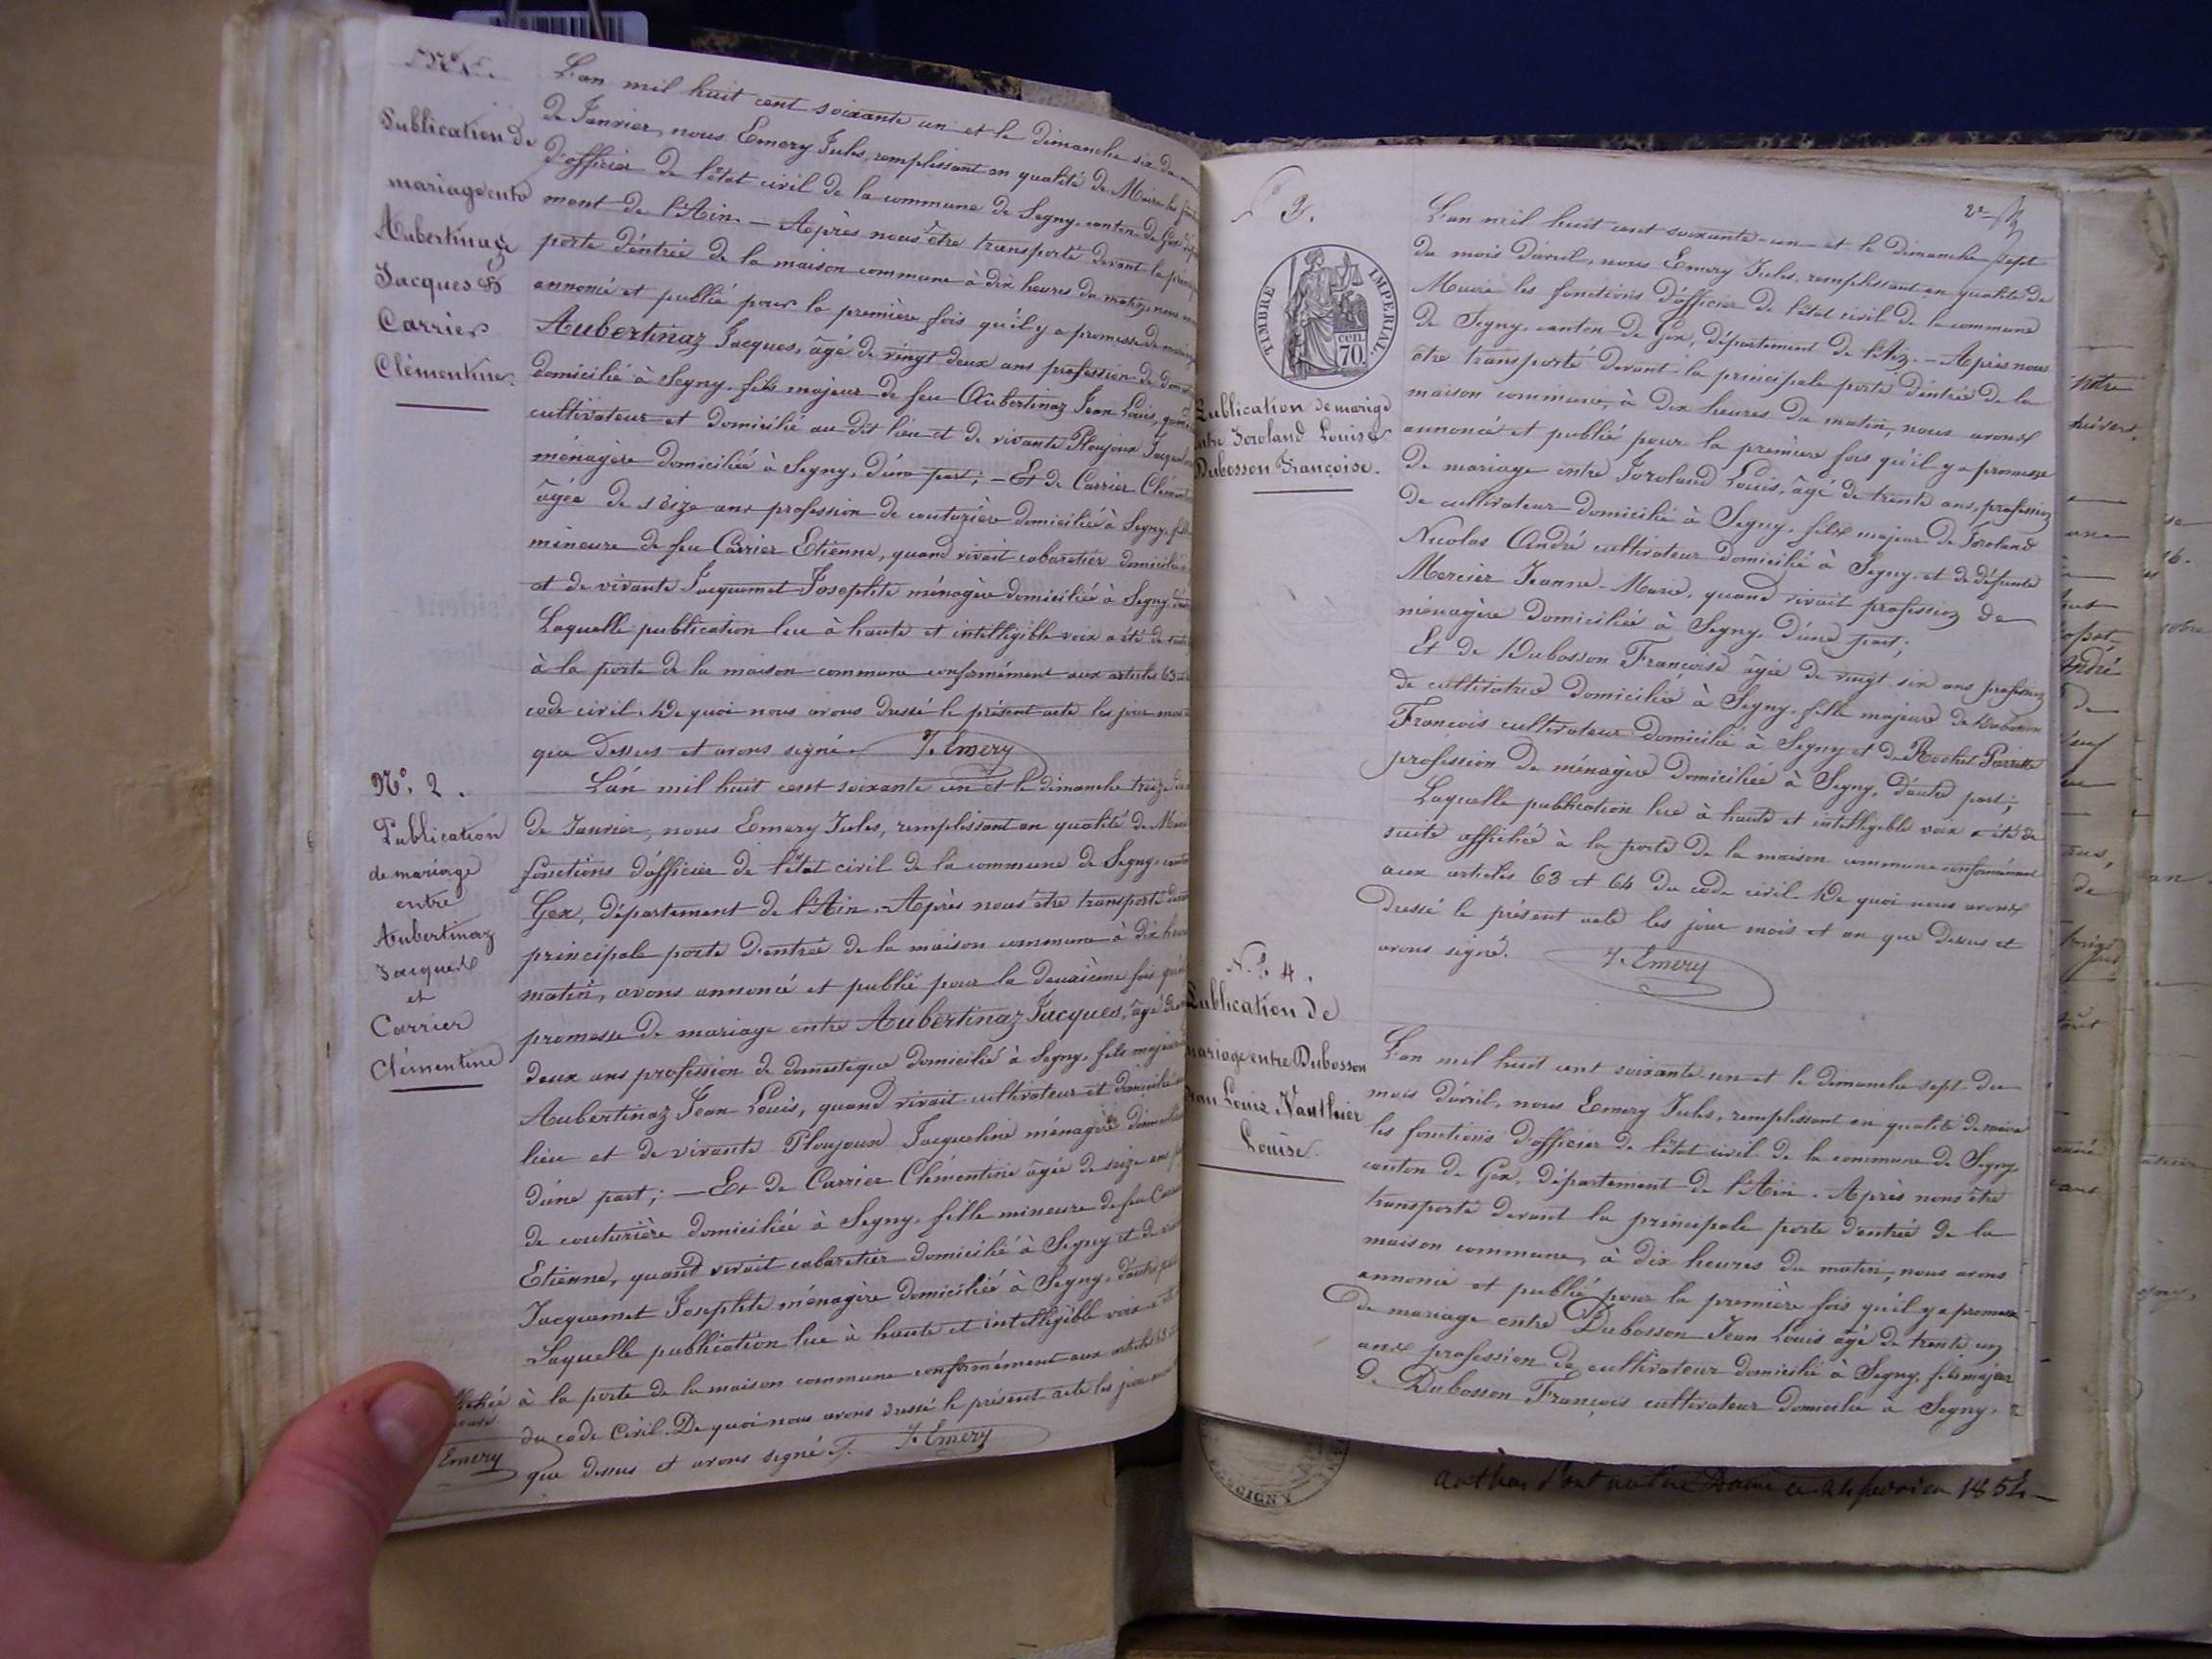 Publication de
mariage entre
Aubertinaz
Jacques &
Carrier
Clémentine.
L'an mil huit cent soixante un et le dimanche six du
de Janvier, nous Emery Jules, remplissant en qualité de Maire les
d'officier de l'état civil de la commune de Segny, canton de Gex
ment de l'Ain. — Après nous être transporté devant la
porte d'entrée de la maison commune à dix heures du matin, nous
annoncé et publié pour la première fois qu'il y a promesse de
Aubertinaz Jacques, âgé de vingt deux ans profession de
domicilié à Segny, fils majeur de feu Aubertinaz Jean Louis,
cultivateur et domicilié au dit lieu et de vivante Ploujoux
ménagère domiciliée à Segny, d'une part; — Et de Carrier
âgée de seize ans profession de couturière domiciliée à Segny,
mineure de feu Carrier Etienne, quand vivait cabaretier
et de vivante Jacquemet Josephte ménagère domiciliée à Segny,
Laquelle publication lue à haute et intelligible voix a été de
à la porte de la maison commune conformément aux articles 63
code civil. De quoi nous avons dressé le présent acte les jour
que dessus et avons signé. J. Emery
N.° 2.
Publication
de mariage
entre
Aubertinaz
Jacques
et
Carrier
Clémentine
L'an mil huit cent soixante un et le dimanche treize
de Janvier, nous Emery Jules, remplissant en qualité de
fonctions d'officier de l'état civil de la commune de Segny,
Gex, département de l'Ain. — Après nous être transporté
principale porte d'entrée de la maison commune à dix
matin, avons annoncé et publié pour la deuxième fois
promesse de mariage entre Aubertinaz Jacques, âgé de
deux ans profession de domestique domicilié à Segny, fils
Aubertinaz Jean Louis, quand vivait cultivateur et
lieu et de vivante Ploujoux Jacqueline ménagère
d'une part; — Et de Carrier Clémentine âgée de seize ans
de couturière domiciliée à Segny, fille mineure de feu
Etienne, quand vivait cabaretier domicilié à Segny et de
Jacquemet Josephte ménagère domiciliée à Segny, d'autre
Laquelle publication lue à haute et intelligible voix
à la porte de la maison commune conformément aux articles 63
du code Civil. De quoi nous avons dressé le présent acte les jour
Emery
que dessus et avons signé. J. Emery
3.
TIMBRE IMPERIAL.
cen
70.
Publication de mariage
entre Joroland Louis &
Dubosson Françoise.
L'an mil huit cent soixante-un et le dimanche sept
du mois d'avril, nous Emery Jules, remplissant en qualité de
Maire les fonctions d'officier de l'état civil de la commune
de Segny, canton de Gex, département de l'Ain. — Après nous
être transporté devant la principale porte d'entrée de la
maison commune, à dix heures du matin, nous avons
annoncé et publié pour la première fois qu'il y a promesse
de mariage entre Joroland Louis, âgé de trente ans, profession
de cultivateur domicilié à Segny, fils majeur de Joroland
Nicolas André cultivateur domicilié à Segny, et de défunte
Mercier Jeanne-Marie, quand vivait profession de
ménagère domiciliée à Segny, d'une part;
Et de Dubosson Françoise âgée de vingt six ans profession
de cultivatrice domiciliée à Segny, fille majeure de Dubosson
François cultivateur domicilié à Segny et de Rochet Pierrette
profession de ménagère domiciliée à Segny, d'autre part;
Laquelle publication lue à haute et intelligible voix a été de
suite affichée à la porte de la maison commune conformément
aux articles 63 et 64 du code civil. De quoi nous avons
dressé le présent acte les jour mois et an que dessus et
avons signé. J. Emery
N.° 4.
Publication de
mariage entre Dubosson
Jean Louis Nanthier
Louise.
L'an mil huit cent soixante-un et le dimanche sept du
mois d'avril, nous Emery Jules, remplissant en qualité de maire
les fonctions d'officier de l'état civil de la commune de Segny,
canton de Gex, département de l'Ain. Après nous être
transporté devant la principale porte d'entrée de la
maison commune, à dix heures du matin, nous avons
annoncé et publié pour la première fois qu'il y a promesse
de mariage entre Dubosson Jean Louis âgé de trente un
ans profession de cultivateur domicilié à Segny, fils majeur
de Dubosson François cultivateur domicilié à Segny,
1854